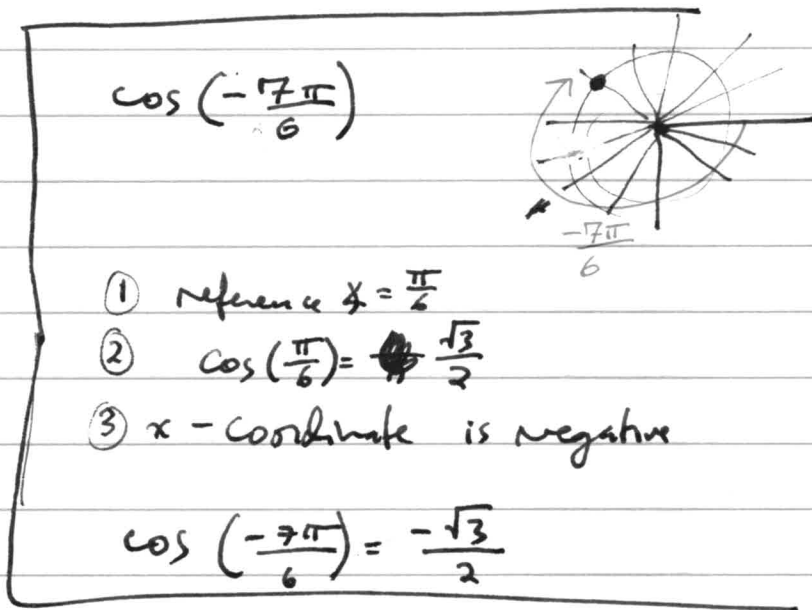 cos(-7π/6)
-7π/6
① reference ∡ = π/6
② cos(π/6) = √3/2
③ x-coordinate is negative
cos(-7π/6) = -√3/2